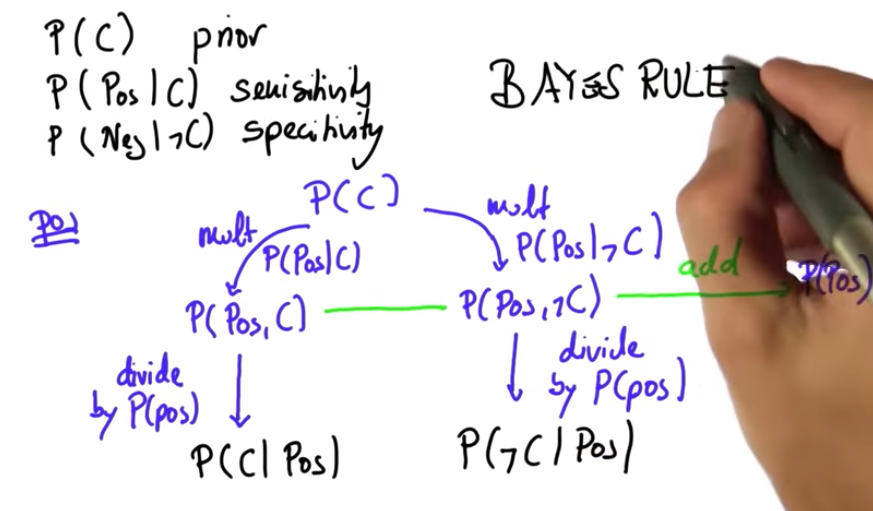 P(C) prior
P(Pos|C) sensitivity
P(Neg|¬C) specitivity
BAYES RULE
Pos
P(C)
mult
P(Pos|C)
mult
P(Pos|¬C)
add
P(Pos,C)
P(Pos,¬C)
P(Pos)
divide
by P(pos)
divide
by P(pos)
P(C|Pos)
P(¬C|Pos)